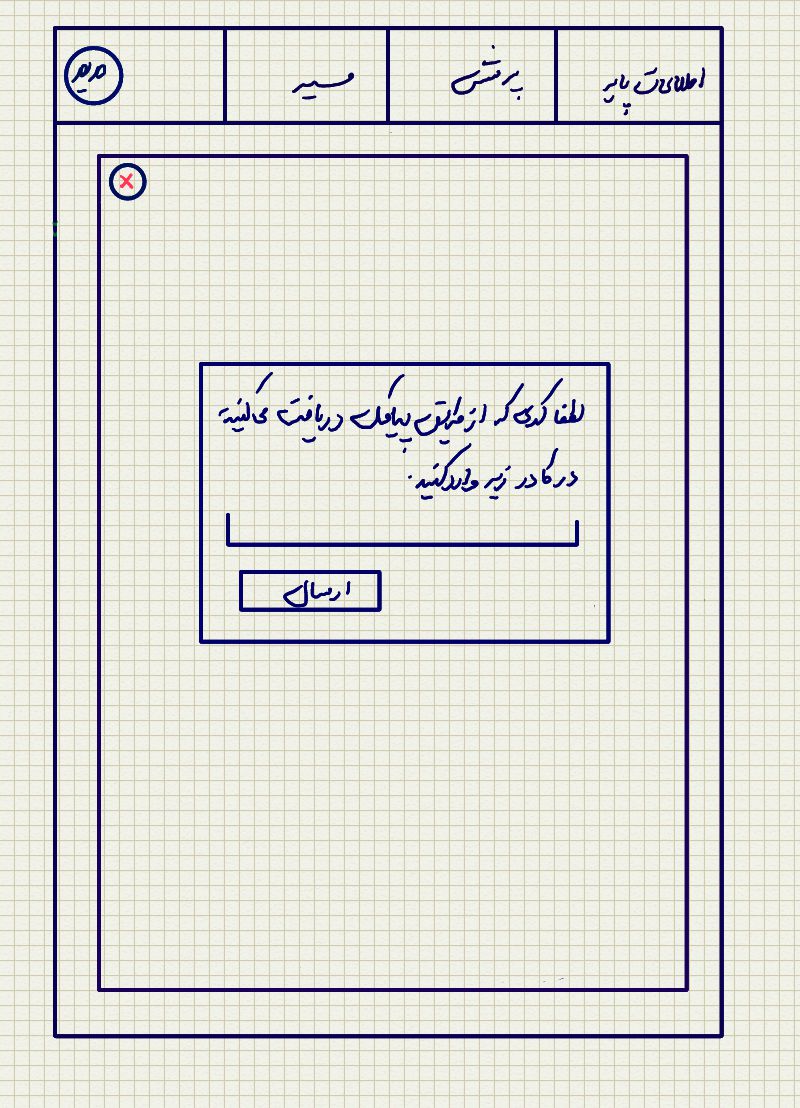 اطلاعات پایه
پرسش
مسیر
مدیر
لطفا کدی که از طریق پیامک دریافت می‌کنید
در کادر زیر وارد کنید.
ارسال